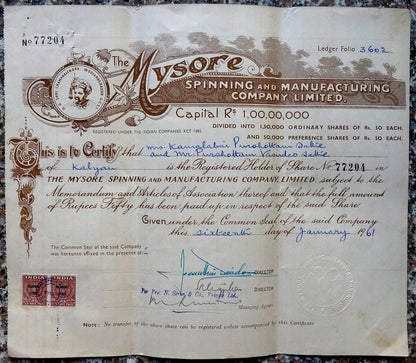 No 77204
Ledger Folio 3602
The Mysore
SPINNING AND MANUFACTURING
COMPANY LIMITED.
Capital Rs 1,00,00,000
REGISTERED UNDER THE INDIAN COMPANIES ACT 1882.
DIVIDED INTO 1,50,000 ORDINARY SHARES OF RS. 50 EACH.
AND 50,000 PREFERENCE SHARES OF RS. 50 EACH.
This is to Certify that Mrs. Kamglabai Purshottam
and Mr. Purshottam Vasudeo
of Kalyan is the Registered Holder of Share No 77204 in
THE MYSORE SPINNING AND MANUFACTURING COMPANY LIMITED, subject to the
Memorandum and Articles of Association thereof and that the full amount
of Rupees Fifty has been paid up in respect of the said Share
Given under the Common Seal of the said Company
this Sixteenth day of January 1961
The Common Seal of the said Company
was hereunto affixed in the presence of
DIRECTOR
DIRECTOR
For Pro. N. Sirur & Co., Private Ltd.
Managing Agents
INDIA
INDIA
NOTE: No transfer of the above share can be registered unless accompanied by this Certificate